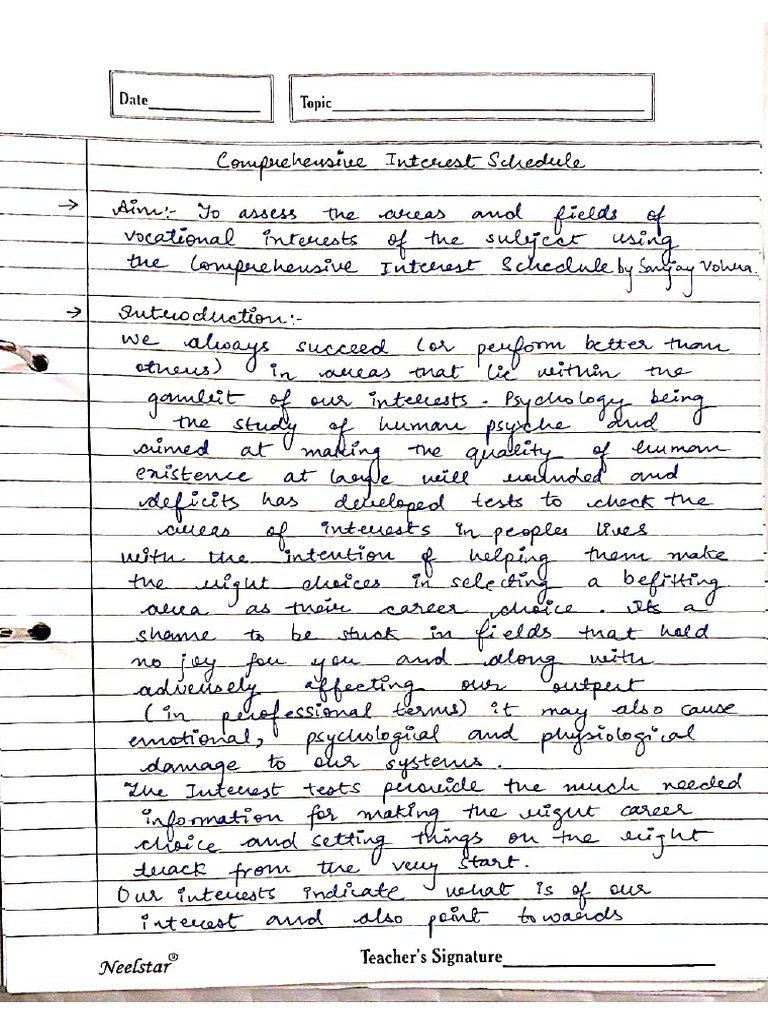 Date
Topic
Comprehensive Interest Schedule
→ Aim:- To assess the areas and fields of
vocational interests of the subject using
the Comprehensive Interest Schedule by Sanjay Vohra.
→ Introduction:-
We always succeed (or perform better than
others) in areas that lie within the
gambit of our interests. Psychology being
the study of human psyche and
aimed at making the quality of human
existence at large well rounded and
deficits has developed tests to check the
areas of interests in peoples lives
with the intention of helping them make
the right choices in selecting a befitting
area as their career choice. Its a
shame to be stuck in fields that hold
no joy for you and along with
adversely affecting our output
(in professional terms) it may also cause
emotional, psychological and physiological
damage to our systems.
The Interest tests provide the much needed
information for making the right career
choice and setting things on the right
track from the very start.
Our interests indicate what is of our
interest and also point towards
Neelstar®
Teacher's Signature